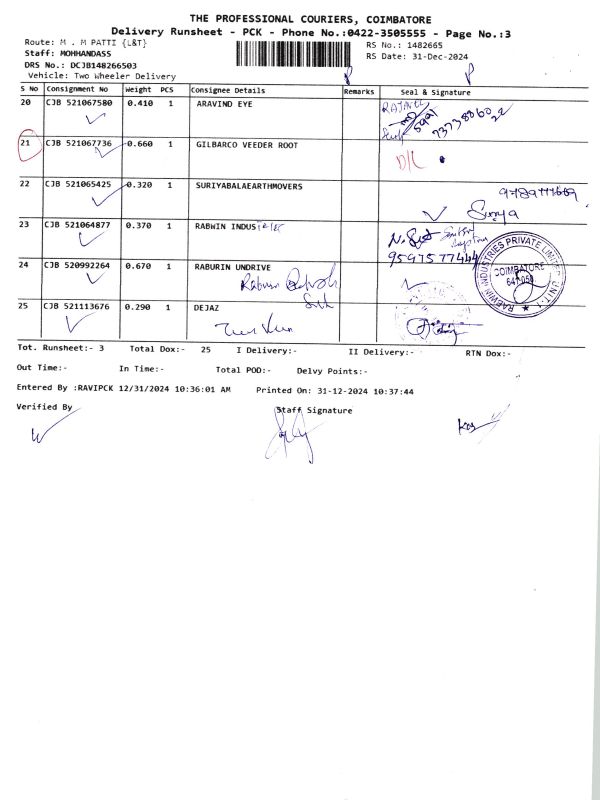 THE PROFESSIONAL COURIERS, COIMBATORE
Delivery Runsheet - PCK - Phone No.:0422-3505555 - Page No.:3
Route: M . M PATTI {L&T}
RS No.: 1482665
Staff: MOHHANDASS
RS Date: 31-Dec-2024
DRS No.: DCJB148266503
Vehicle: Two Wheeler Delivery
S No Consignment No Weight PCS Consignee Details Remarks Seal & Signature
20 CJB 521067580 0.410 1 ARAVIND EYE
21 CJB 521067736 0.660 1 GILBARCO VEEDER ROOT
D/L
22 CJB 521065425 0.320 1 SURIYABALAEARTHMOVERS
Surya
23 CJB 521064877 0.370 1 RABWIN INDUS
9597577444
24 CJB 520992264 0.670 1 RABURIN UNDRIVE
RABWIN INDUSTRIES PRIVATE LIMITED UNIT-I
COIMBATORE
641 050
25 CJB 521113676 0.290 1 DEJAZ
Tot. Runsheet:- 3 Total Dox:- 25 I Delivery:- II Delivery:- RTN Dox:-
Out Time:- In Time:- Total POD:- Delvy Points:-
Entered By :RAVIPCK 12/31/2024 10:36:01 AM Printed On: 31-12-2024 10:37:44
Verified By Staff Signature